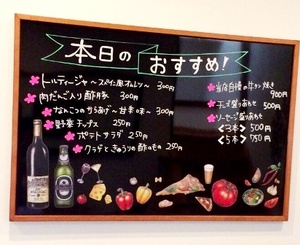 本日の
おすすめ!
トルティージャ〜スペイン風オムレツ〜 300円
肉だんご入り酢豚 300円
なんこつのからあげ〜甘辛味〜 300円
野菜チップス 250円
ポテトサラダ 250円
クラゲときゅうりの酢のもの 250円
当店自慢の牛タン焼き
900円
チーズ盛り合わせ
500円
ソーセージ盛り合わせ
<3本> 500円
<5本> 750円